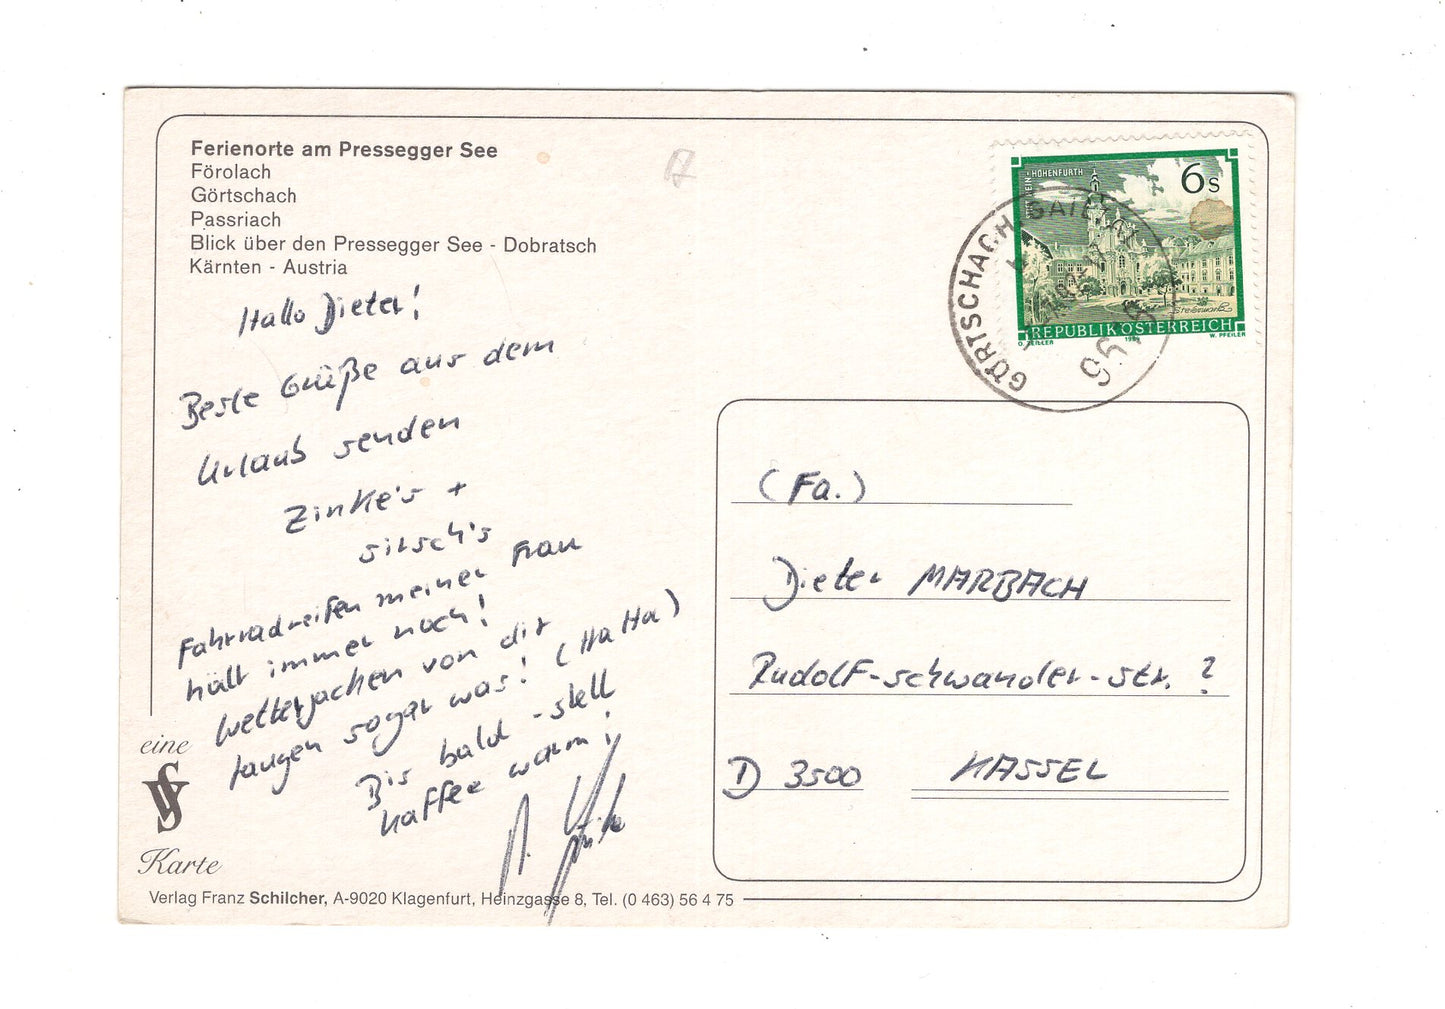 Ferienorte am Pressegger See
Förolach
Görtschach
Passriach
Blick über den Pressegger See - Dobratsch
Kärnten - Austria
Hallo Dieter!
Beste Grüße aus dem
Urlaub senden
Zinke's +
Sitsch's
Fahrradreifen meiner Frau
hält immer noch!
Wetterjacken von dir
taugen sogar was! (Ha Ha)
Bis bald - stell
Kaffee warm!
eine
VS
Karte
Verlag Franz Schilcher, A-9020 Klagenfurt, Heinzgasse 8, Tel. (0 463) 56 4 75
HOHENFURTH
6 S
REPUBLIK ÖSTERREICH
W. PFEILER
GÖRTSCHACH, GAILTAL
(Fa.)
Dieter MARBACH
Rudolf-Schwander-Str. ?
D 3500 KASSEL